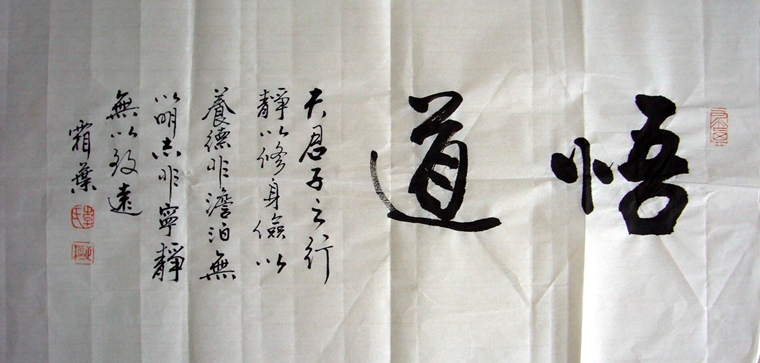 悟道
夫君子之行
靜以修身儉以
養德非澹泊無
以明志非寧靜
無以致遠
霜葉